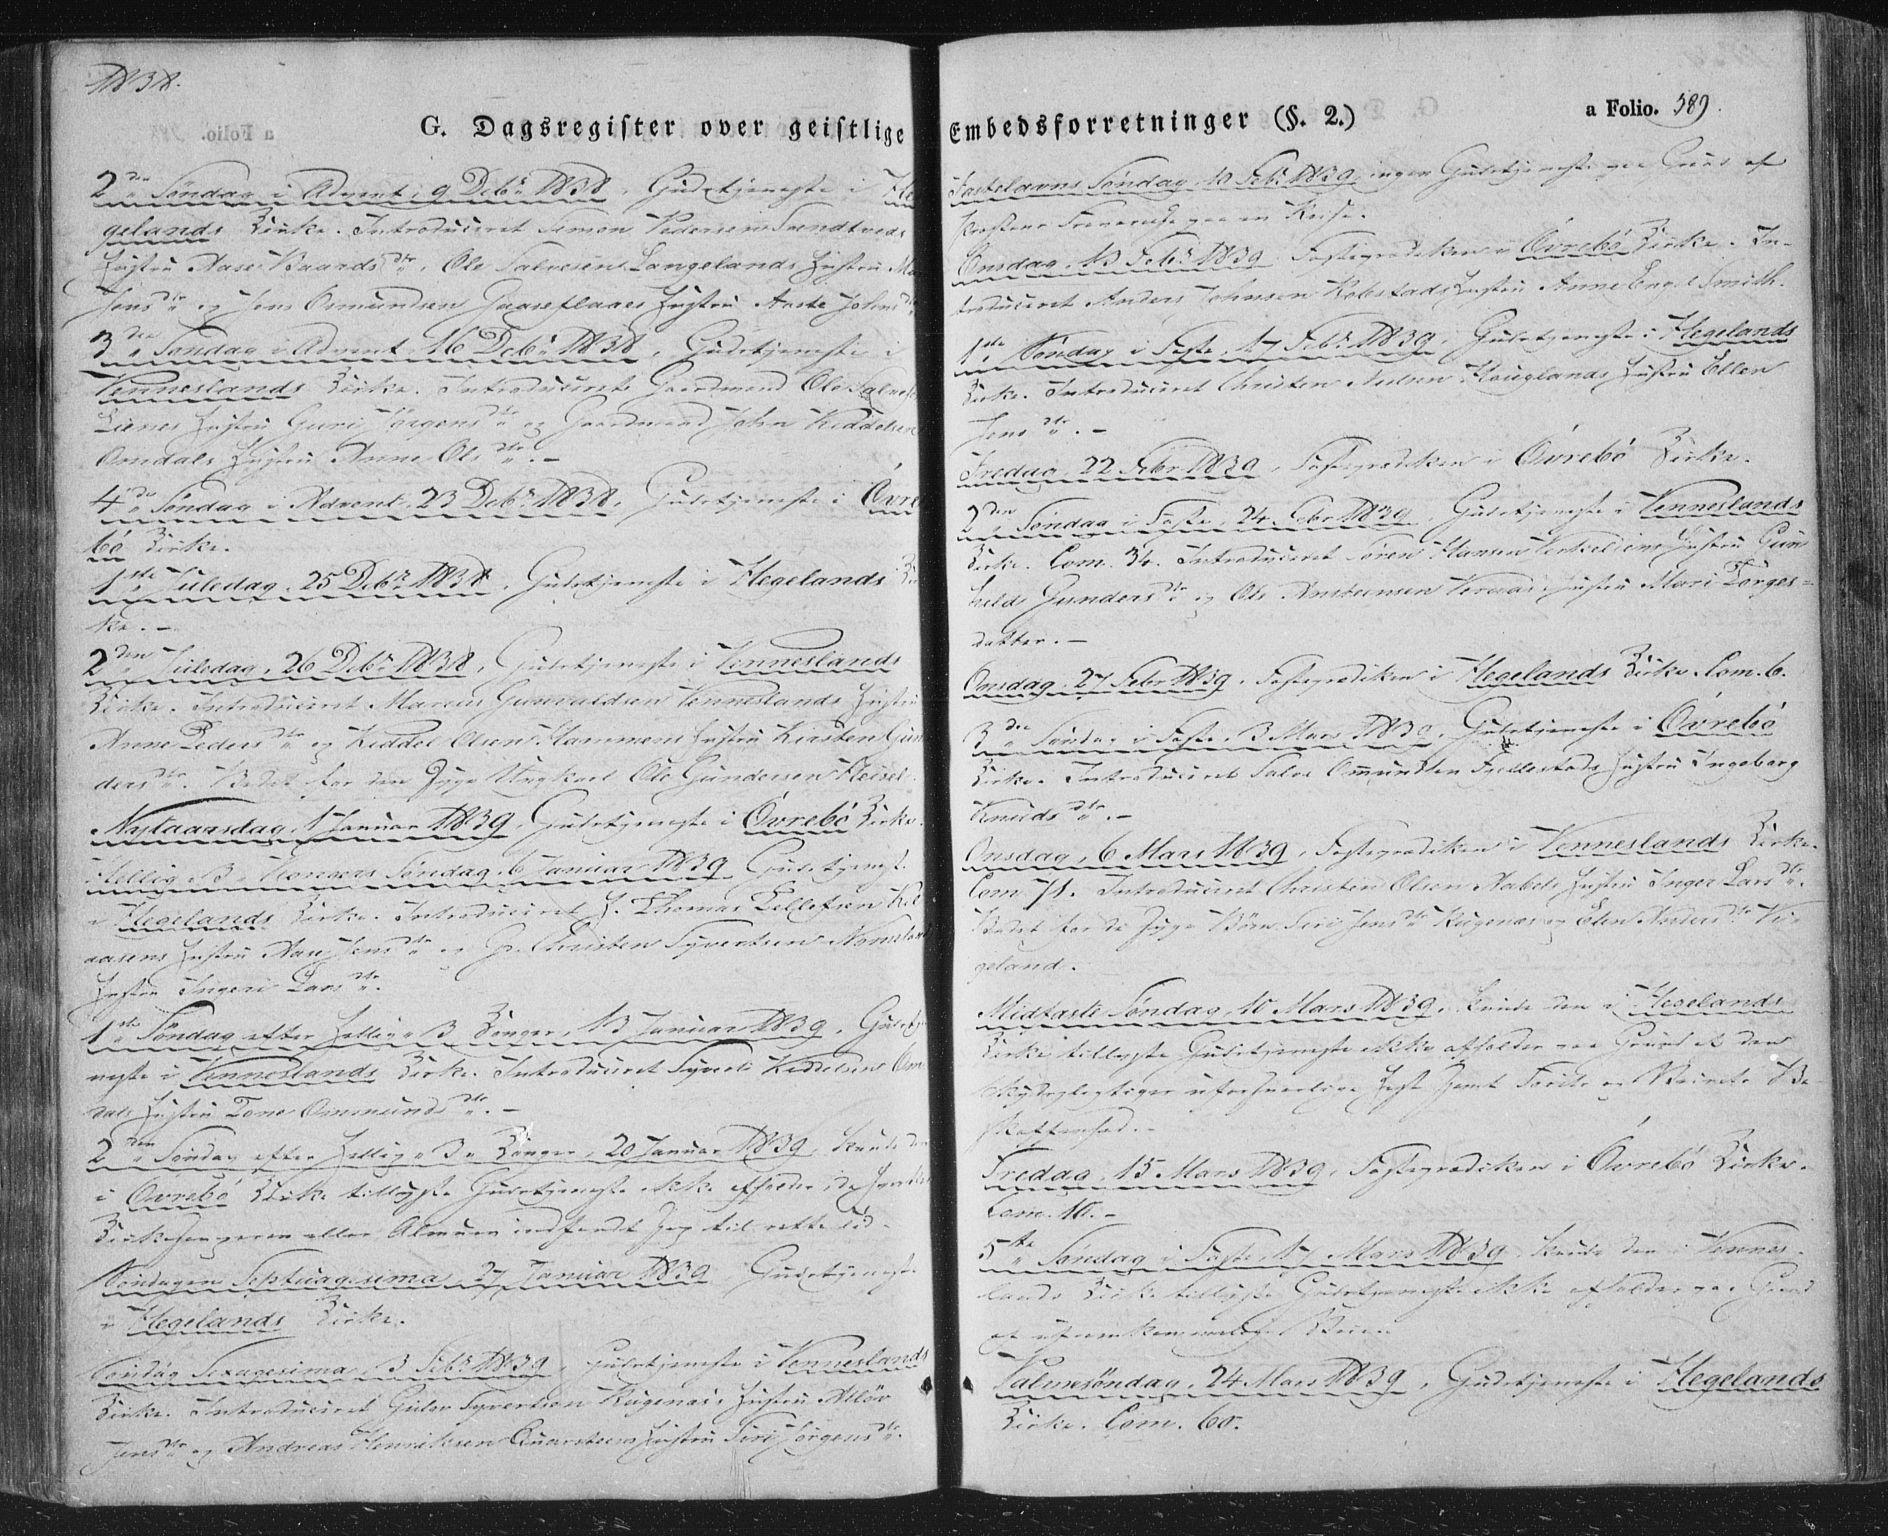 1838.
G. Dagsregister over geistlige Embedsforretninger (§. 2.)
a Folio. 589.
2den Søndag i Advent, 9 Debr 1838, Gudstjeneste i He
gelands Kirke. Introduceret Simon Pedersen
Hustru Aase Baards dtr, Ole Salvesen Langelands Hustru
Jens dtr og Jens Osmundsen Hustru Aaste Johns dtr
3die Søndag i Advent, 16 Debr 1838, Gudstjeneste i
Venneslands Kirke. Introduceret Gaardmand Ole Salves
Lienes Hustru Guri Jörgens dtr og Gaardmand John Kiddelsen
Omdals Hustru Anne Ols dtr. -
4de Søndag i Advent, 23 Debr 1838, Gudstjeneste i Øvre
bö Kirke.
1ste Juledag, 25 Debr 1838, Gudstjeneste i Hegelands Kir
ke. -
2den Juledag, 26 Debr 1838, Gudstjeneste i Venneslands
Kirke. Introduceret Marcus Gunvaldsen Venneslands Hustru
Anne Peders dtr og Kiddel Olsen Hammens Hustru Kirsten Gun
ders dtr. Bedet for den syge Ungkarl Ole Gundersen Heisel.
Nytaarsdag, 1 Januar 1839, Gudstjeneste i Övrebö Kirke.
Hellig 3 Kongers Søndag, 6 Januar 1839, Gudstjeneste
i Hegelands Kirke. Introduceret H. Thomas Tellefsen Kil
aasens Hustru Aase Jens dtr og Gr. Christen Syvertsen
Hustru Ingeri Lars dtr.
1ste Søndag efter Hellig 3 Konger, 13 Januar 1839, Gudstje
neste i Venneslands Kirke. Introduceret Syvert Kiddelsen Om
dals Hustru Tone Ommunds dtr. -
2den Søndag efter Hellig 3 Konger, 20 Januar 1839, kunde den
i Övrebö Kirke tillyste Gudstjeneste ikke afholdes, da hverken
Kirkesangeren eller Almuen indfandt sig til rette Tid.
Søndagen Septuagesima, 27 Januar 1839, Gudstjeneste
i Hegelands Kirke.
Søndag Sexagesima, 3 Febr 1839, Gudstjeneste i Venneslands
Kirke. Introduceret Gulov Syvertsen Rugenæs's Hustru
Jens dtr og Andreas Henriksen Quarsteens Hustru Siri Jörgens dtr.
Fastelavns Søndag, 10 Febr 1839, ingen Gudstjeneste paa Grund af
Præstens Fraværelse paa en Reise.
Onsdag, 13 Febr 1839, Fasteprædiken i Övrebö Kirke. In-
troduceret Anders Johnsen Robstads Hustru Anne Engel Smith.
1ste Søndag i Faste, 17 Febr 1839, Gudstjeneste i Hegelands
Kirke. Introduceret Christen Nielsen Houglands Hustru Ellen
Jens dtr. -
Fredag, 22 Febr 1839, Fasteprædiken i Övrebö Kirke.
2den Søndag i Faste, 24 Febr 1839, Gudstjeneste i Venneslands
Kirke. Com. 34. Introduceret Sören Hansen Hustru Gun
hild Gunders dtr og Ols Hustru Mari Torges-
datter. -
Onsdag, 27 Febr 1839, Fasteprædiken i Hegelands Kirke. Com. 6.
3die Søndag i Faste, 3 Mars 1839, Gudstjeneste i Övrebö
Kirke. Introduceret Salve Omundsen Fjellestads Hustru Ingeborg
Knuds dtr. -
Onsdag, 6 Mars 1839, Fasteprædiken i Venneslands Kirke.
Com. 71. Introduceret Christen Olsen Nabels Hustru Inger Lars dtr.
Bedet for de syge Börn Siri Jens dtr Rugenæs og Elen Anders dtr Vi
geland.
Midfaste Søndag, 10 Mars 1839, kunde den i Hegelands
Kirke tillyste Gudstjeneste ikke afholdes paa Grund af den
skydspligtiges uforsvarlige Hest samt Foreets og Veirets Be-
skaffenhed. -
Fredag, 15 Mars 1839, Fasteprædiken i Övrebö Kirke.
Com. 10. -
5te Søndag i Faste, 17 Mars 1839, kunde den i Vennes-
lands Kirke tillyste Gudstjeneste ikke afholdes paa Grund
af ufremkommelige Veie.
Palmesöndag, 24 Mars 1839, Gudstjeneste i Hegelands
Kirke. Com. 60.